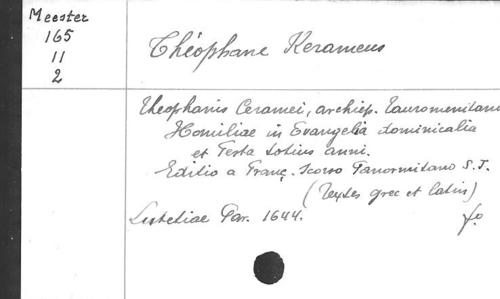 Meester
165
11
2
Théophane Kerameus
Theophanis Ceramei, archiep. Tauromenitani
Homiliae in Evangelia dominicalia
et Festa totius anni.
Editio a Franç. Scorso Panormitano S.J.
(Textes grec et latin)
Lutetiae Par. 1644. fo